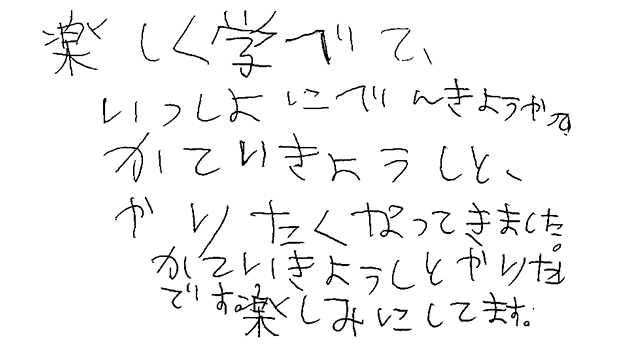 楽しく学べて、
いっしょにでんきょうかで
かていきょうしと、
やりたくなってきました。
かていきょうしとやりたい
です。楽しみにしてます。